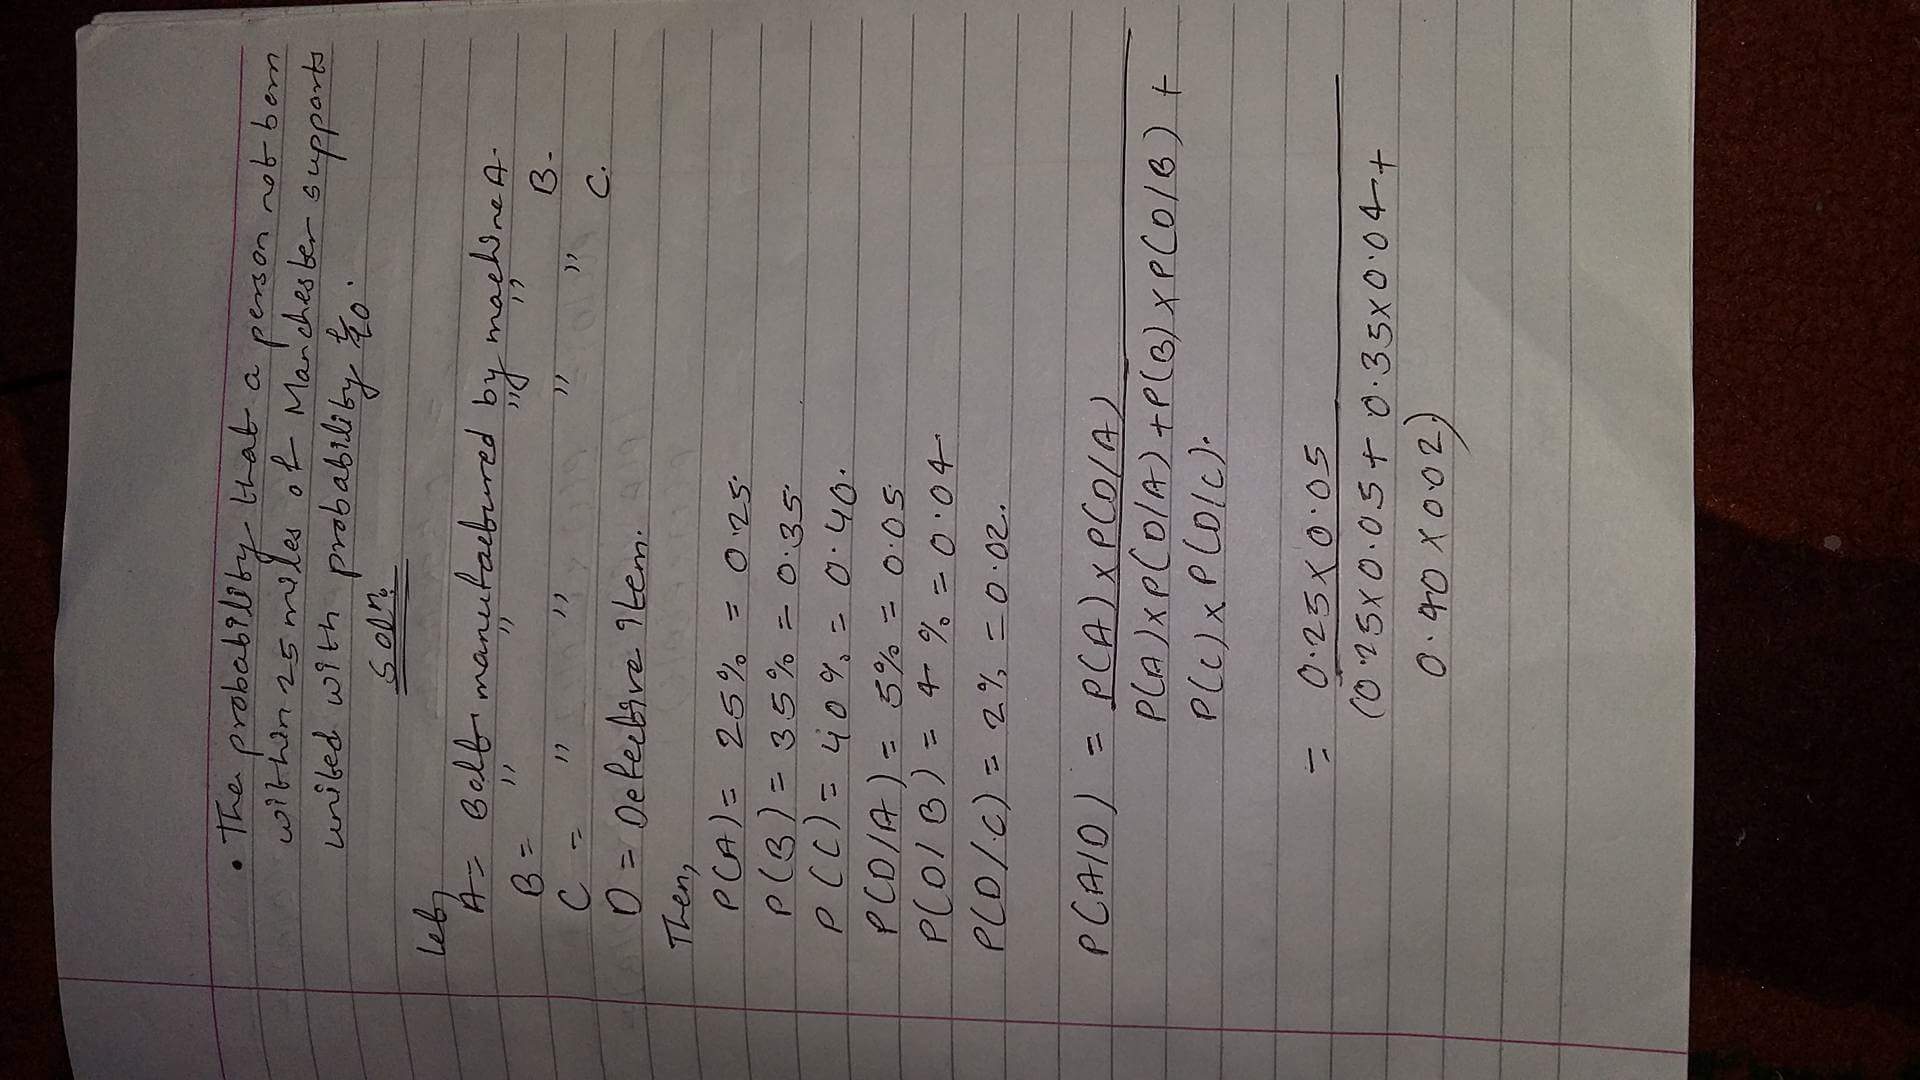 • The probability that a person not born
within 25 miles of Manchester supports
united with probability
Soln.
Let,
A = Bolt manufactured by machine A.
B = " " " " B.
C = " " " " C.
D = Defective item.
Then,
P(A) = 25% = 0.25.
P(B) = 35% = 0.35.
P(C) = 40% = 0.40.
P(D/A) = 5% = 0.05
P(D/B) = 4% = 0.04
P(D/C) = 2% = 0.02.
P(A/D) = P(A) x P(D/A)
P(A) x P(D/A) + P(B) x P(D/B) +
P(C) x P(D/C).
= 0.25 x 0.05
(0.25 x 0.05 + 0.35 x 0.04 +
0.40 x 0.02)